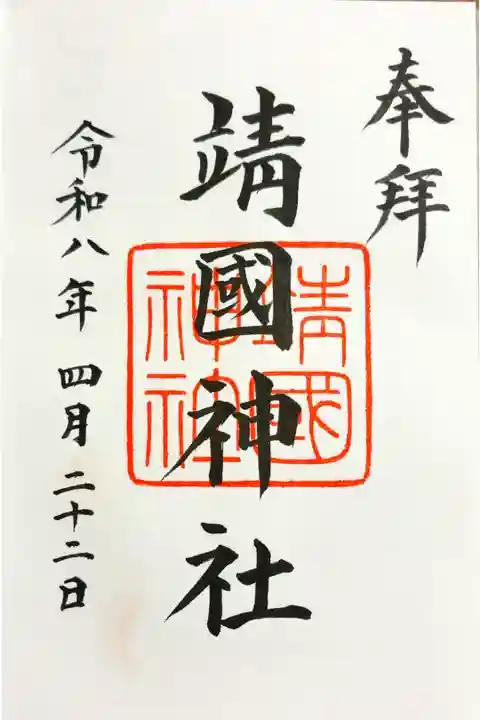 奉拜
靖國神社
靖國
神社
令和八年 四月 二十二日